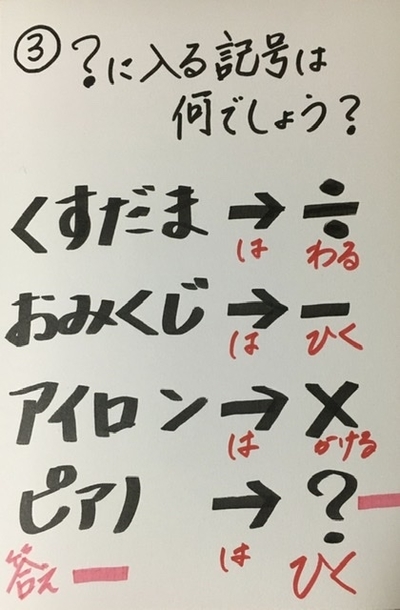 ③ ?に入る記号は
何でしょう?
くすだま → ÷
は わる
おみくじ → −
は ひく
アイロン → ×
は かける
ピアノ → ? ー
は ひく
答え ー